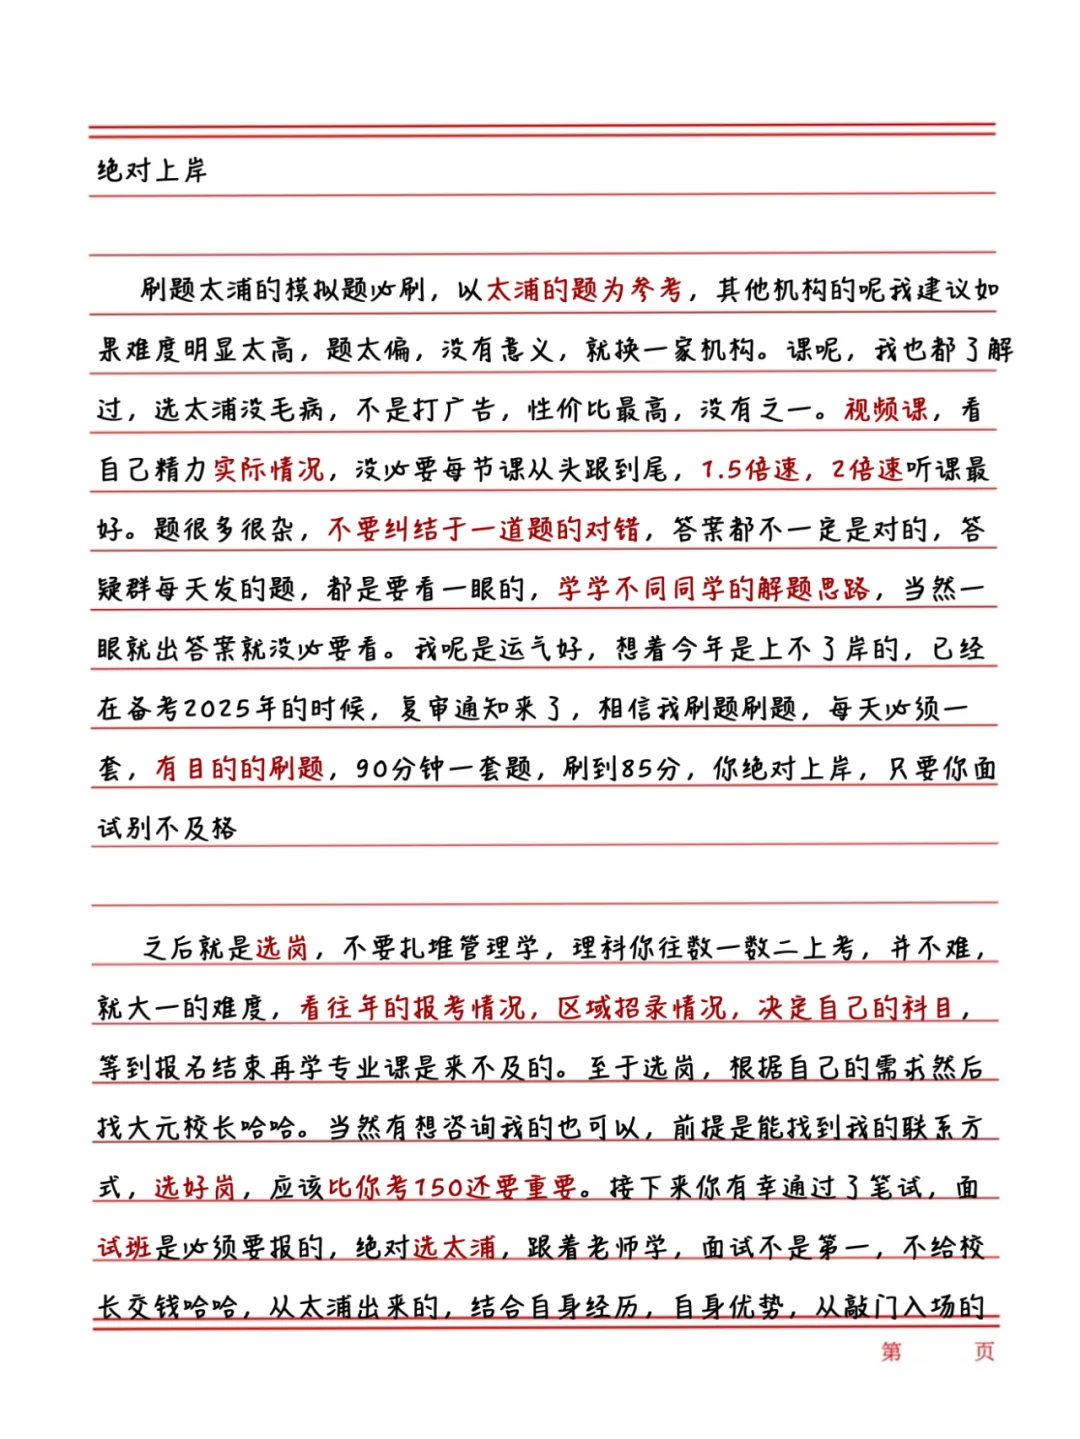 绝对上岸
刷题太浦的模拟题必刷，以太浦的题为参考，其他机构的呢我建议如
果难度明显太高，题太偏，没有意义，就换一家机构。课呢，我也都了解
过，选太浦没毛病，不是打广告，性价比最高，没有之一。视频课，看
自己精力实际情况，没必要每节课从头跟到尾，1.5倍速，2倍速听课最
好。题很多很杂，不要纠结于一道题的对错，答案都不一定是对的，答
疑群每天发的题，都是要看一眼的，学学不同同学的解题思路，当然一
眼就出答案就没必要看。我呢是运气好，想着今年是上不了岸的，已经
在备考2025年的时候，复审通知来了，相信我刷题刷题，每天必须一
套，有目的的刷题，90分钟一套题，刷到85分，你绝对上岸，只要你面
试别不及格
之后就是选岗，不要扎堆管理学，理科你往数一数二上考，并不难，
就大一的难度，看往年的报考情况，区域招录情况，决定自己的科目，
等到报名结束再学专业课是来不及的。至于选岗，根据自己的需求然后
找大元校长哈哈。当然有想咨询我的也可以，前提是能找到我的联系方
式，选好岗，应该比你考150还要重要。接下来你有幸通过了笔试，面
试班是必须要报的，绝对选太浦，跟着老师学，面试不是第一，不给校
长交钱哈哈，从太浦出来的，结合自身经历，自身优势，从敲门入场的
第 页